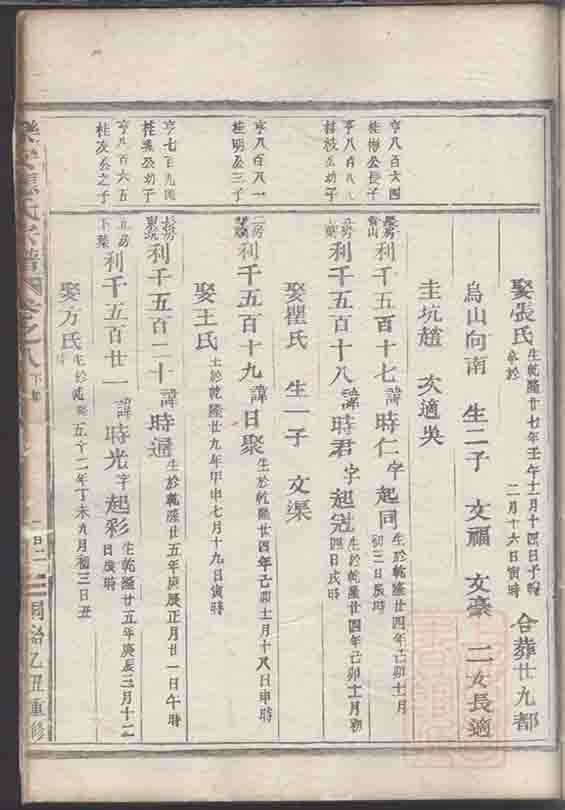 亨八百六四
桂樹公長子
亨八百八八
桂枝公幼子
亨八百八一
桂明公三子
亨七百九四
桂 公幼子
亨八百六五
桂次公之子
娶張氏 生乾隆廿七年壬午十一月十四日子時
二月十六日寅時 合葬廿九都
烏山向南 生二子 文福 文豪 二女長適
圭坑趙 次適吳
利千五百十七 諱時仁 字起同 生於乾隆廿四年己卯十一月
初三日辰時
利千五百十八 諱時君 字起冠 生於乾隆廿四年己卯十一月初
四日戌時
娶瞿氏 生一子 文渠
二房
利千五百十九 諱日聚 生於乾隆廿四年己卯十一月十八日申時
娶王氏 生於乾隆廿九年甲申七月十九日寅時
利千五百二十 諱時 生於乾隆廿五年庚辰正月廿一日午時
五房
下葉
利千五百廿一 諱時光 字起彩 生乾隆廿五年庚辰三月十二
日辰時
娶方氏 生於乾隆五十二年丁未九月初三日丑
氏宗譜
卷之八
同治乙丑重修